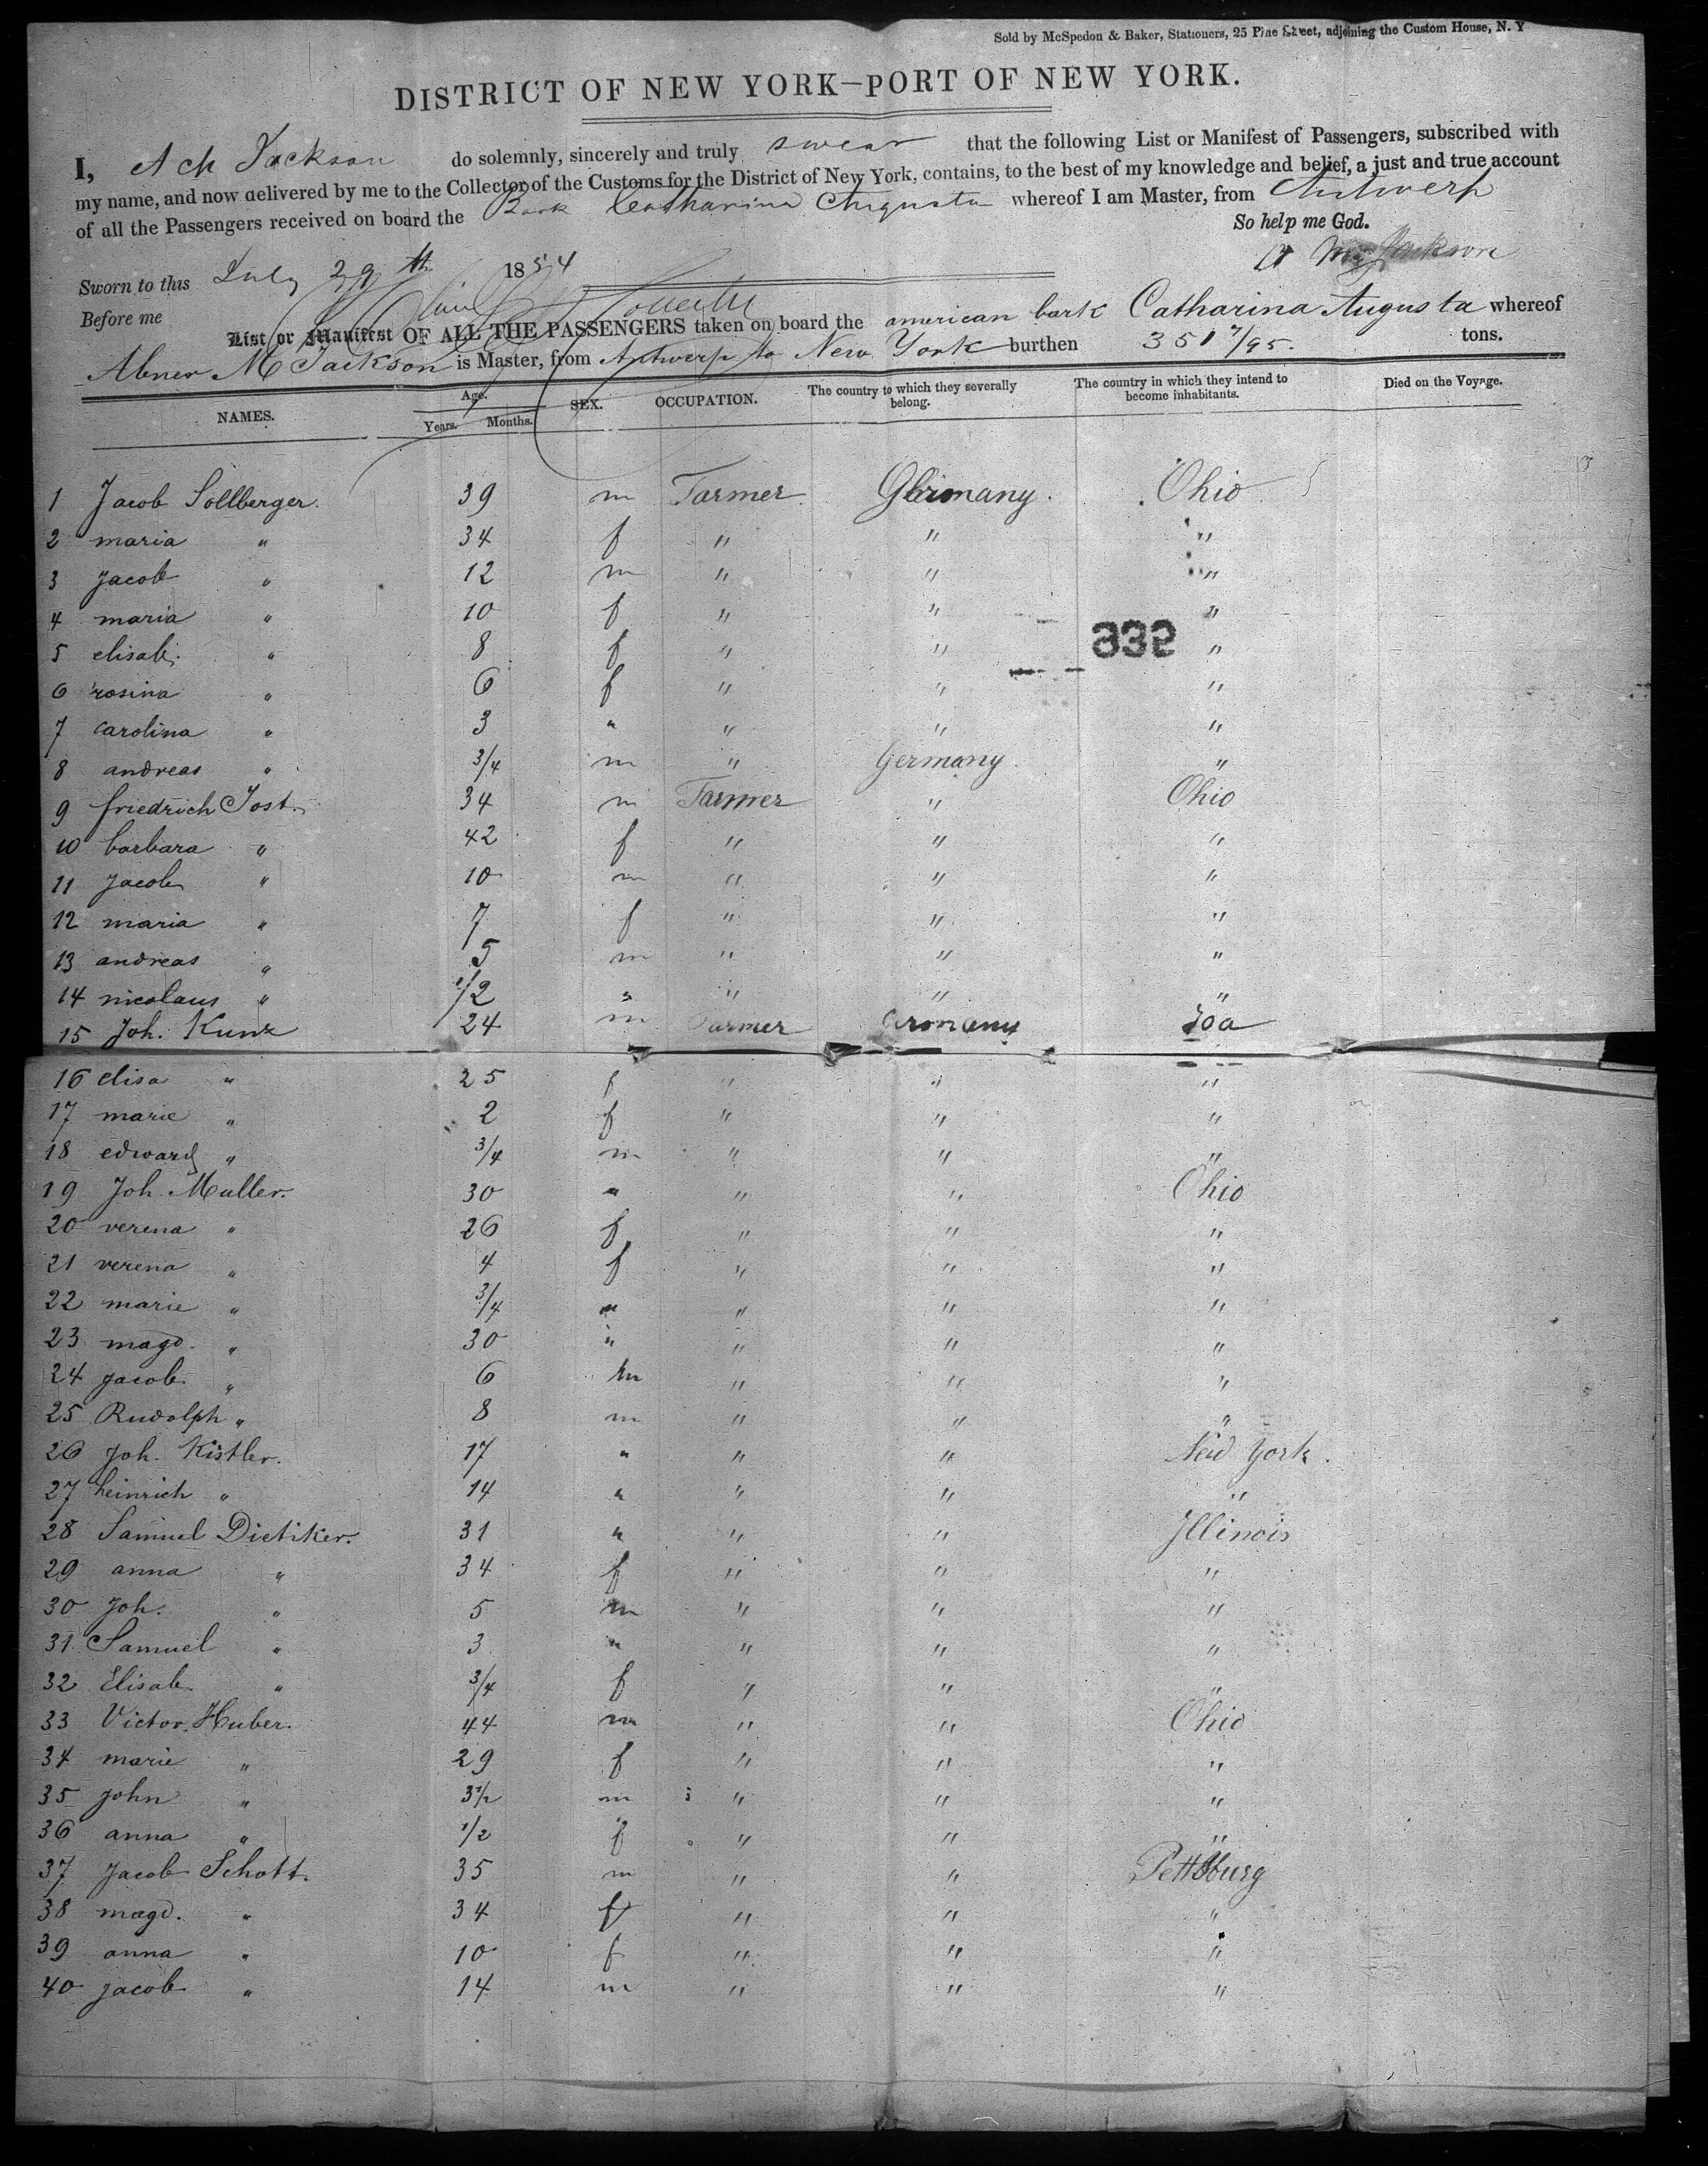 Sold by McSpedon & Baker, Stationers, 25 Pine Street, adjoining the Custom House, N. Y
DISTRICT OF NEW YORK—PORT OF NEW YORK.
I, A Jackson do solemnly, sincerely and truly swear that the following List or Manifest of Passengers, subscribed with
my name, and now delivered by me to the Collector of the Customs for the District of New York, contains, to the best of my knowledge and belief, a just and true account
of all the Passengers received on board the Bark Catharina Augusta whereof I am Master, from Antwerp
So help me God.
Sworn to this July 29th 1854 A M Jackson
Before me
List or Manifest OF ALL THE PASSENGERS taken on board the american bark Catharina Augusta whereof
Abner M Jackson is Master, from Antwerp to New York burthen 351 7/95. tons.
NAMES. Age. Years. Months. SEX. OCCUPATION. The country to which they severally belong. The country in which they intend to become inhabitants. Died on the Voyage.
1 Jacob Sollberger. 39 m Farmer Germany. Ohio
2 maria " 34 f " " "
3 Jacob " 12 m " " "
4 maria " 10 f " " "
5 elisab. " 8 f " " "
6 rosina " 6 f " " "
7 carolina " 3 " " " "
8 andreas " 3/4 m " Germany "
9 friedrich Jost. 34 m Farmer " Ohio
10 barbara " 42 f " " "
11 Jacob " 10 m " " "
12 maria " 7 f " " "
13 andreas " 5 m " " "
14 nicolaus " 1/2 " " " "
15 Joh. Kunz 24 m Farmer Germany Joa
16 elisa " 25 f " " "
17 marie " 2 f " " "
18 edward " 3/4 m " " "
19 Joh. Muller. 30 " " " Ohio
20 verena " 26 f " " "
21 verena " 4 f " " "
22 marie " 3/4 " " " "
23 magd. " 30 " " " "
24 jacob " 6 m " " "
25 Rudolph " 8 m " " "
26 Joh. Kistler. 17 " " " New York.
27 heinrich " 14 " " " "
28 Samuel Dietiker. 31 " " " Illinois
29 anna " 34 f " " "
30 Joh. " 5 m " " "
31 Samuel " 3 " " " "
32 Elisab. " 3/4 f " " "
33 Victor Huber. 44 m " " Ohio
34 marie " 29 f " " "
35 john " 3 1/2 m " " "
36 anna " 1/2 f " " "
37 Jacob Schott. 35 m " " Pettsburg
38 magd. " 34 f " " "
39 anna " 10 f " " "
40 jacob " 14 m " " "